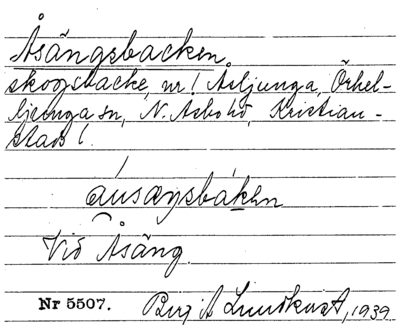 Åsängsbacken
skogsbacke, nr 1 Åsljunga, Örkel-
ljunga sn, N. Åsbo hd, Kristian-
stads l.
áusæŋsbákən
Vid Åsäng.
Nr 5507. Birgit Lundkvist, 1939